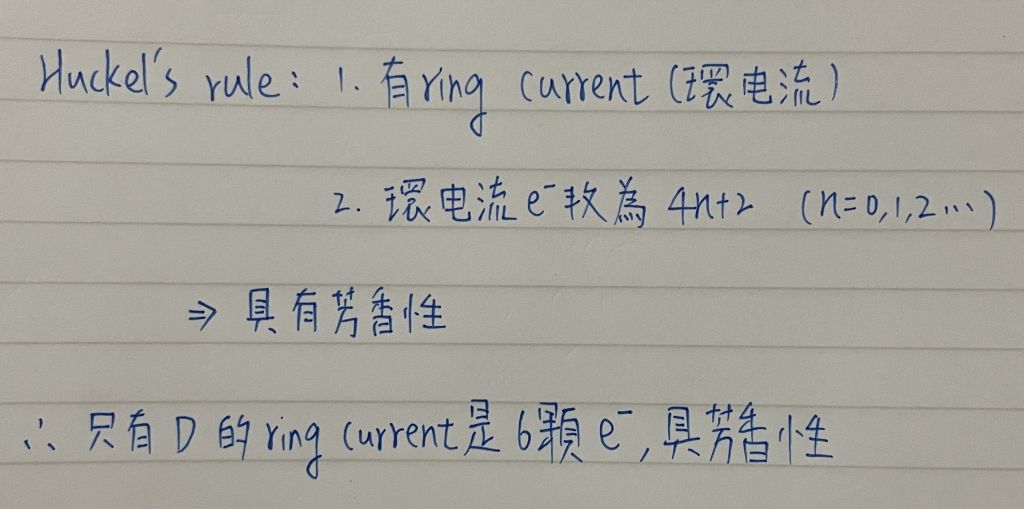 Huckel's rule: 1. 有 ring current (環电流)
2. 環电流 e⁻ 数為 4n+2 (n=0,1,2...)
⇒ 具有芳香性
∴ 只有 D 的 ring current 是 6顆 e⁻, 具芳香性